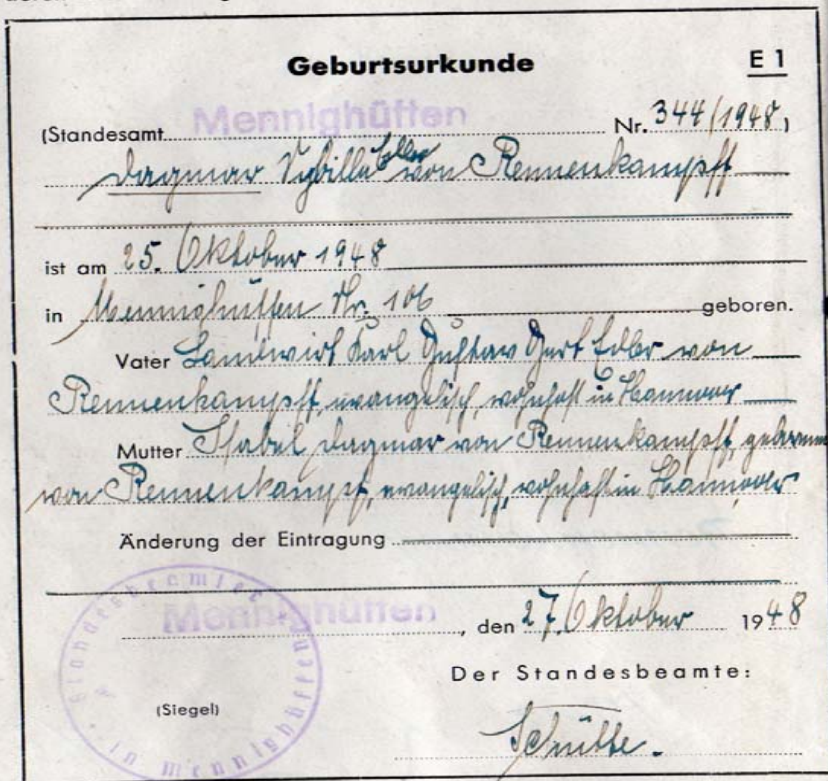 Geburtsurkunde E 1
Mennighüffen
(Standesamt Nr. 344/1948)
Edler
Dagmar Sybille von Rennenkampff
ist am 25. Oktober 1948
in Mennighüffen Nr. 106 geboren.
Vater Landwirt Karl Gustav Gert Edler von
Rennenkampff, evangelisch, wohnhaft in Hannover
Mutter Isabel Dagmar von Rennenkampff, geborene
von Rennenkampff, evangelisch, wohnhaft in Hannover
Änderung der Eintragung
Mennighüffen, den 27. Oktober 1948
Der Standesbeamte:
(Siegel)
Schütte.
Standesbeamter in Mennighüffen